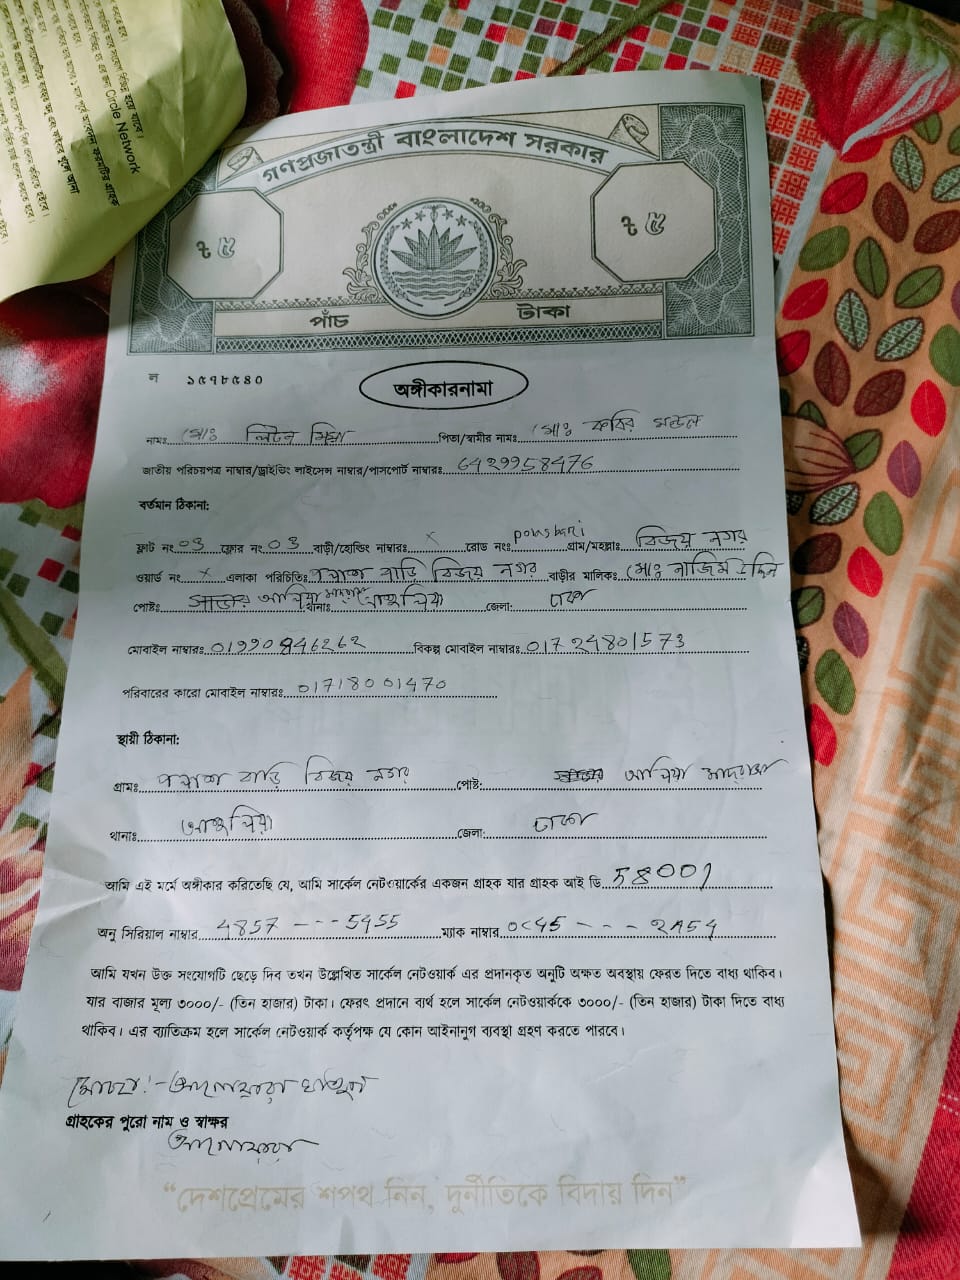 গণপ্রজাতন্ত্রী বাংলাদেশ সরকার
৳ ৫
৳ ৫
পাঁচ টাকা
ল ১৫৭৮৫৪০
অঙ্গীকারনামা
নামঃ মোঃ লিটন মিয়া পিতা/স্বামীর নামঃ মোঃ কবির মন্ডল
জাতীয় পরিচয়পত্র নাম্বার/ড্রাইভিং লাইসেন্স নাম্বার/পাসপোর্ট নাম্বারঃ 6429958476
বর্তমান ঠিকানা:
ফ্লাট নং ০3 ফ্লোর নং ০3 বাড়ী/হোল্ডিং নাম্বারঃ x রোড নংঃ গ্রাম/মহল্লাঃ বিজয় নগর
ওয়ার্ড নং x এলাকা পরিচিতিঃ পলাশ বাড়ি বিজয় নগর বাড়ীর মালিকঃ মোঃ নাজিম উদ্দিন
পোষ্টঃ আলিয়া মাদ্রাসা থানাঃ আশুলিয়া জেলা: ঢাকা
মোবাইল নাম্বারঃ 01990846262 বিকল্প মোবাইল নাম্বারঃ 01724801573
পরিবারের কারো মোবাইল নাম্বারঃ 01718001470
স্থায়ী ঠিকানা:
গ্রামঃ পলাশ বাড়ি বিজয় নগর পোষ্ট: আলিয়া মাদ্রাসা
থানাঃ আশুলিয়া জেলা: ঢাকা
আমি এই মর্মে অঙ্গীকার করিতেছি যে, আমি সার্কেল নেটওয়ার্কের একজন গ্রাহক যার গ্রাহক আই ডি 58001
অনু সিরিয়াল নাম্বার 4857 --- 5455 ম্যাক নাম্বার 0C45 --- 2A54
আমি যখন উক্ত সংযোগটি ছেড়ে দিব তখন উল্লেখিত সার্কেল নেটওয়ার্ক এর প্রদানকৃত অনুটি অক্ষত অবস্থায় ফেরত দিতে বাধ্য থাকিব।
যার বাজার মূল্য ৩০০০/- (তিন হাজার) টাকা। ফেরৎ প্রদানে ব্যর্থ হলে সার্কেল নেটওয়ার্ককে ৩০০০/- (তিন হাজার) টাকা দিতে বাধ্য
থাকিব। এর ব্যাতিক্রম হলে সার্কেল নেটওয়ার্ক কর্তৃপক্ষ যে কোন আইনানুগ ব্যবস্থা গ্রহণ করতে পারবে।
মোছাঃ- আনোয়ারা খাতুন
গ্রাহকের পুরো নাম ও স্বাক্ষর
আনোয়ারা
“দেশপ্রেমের শপথ নিন, দুর্নীতিকে বিদায় দিন”
Circle Network